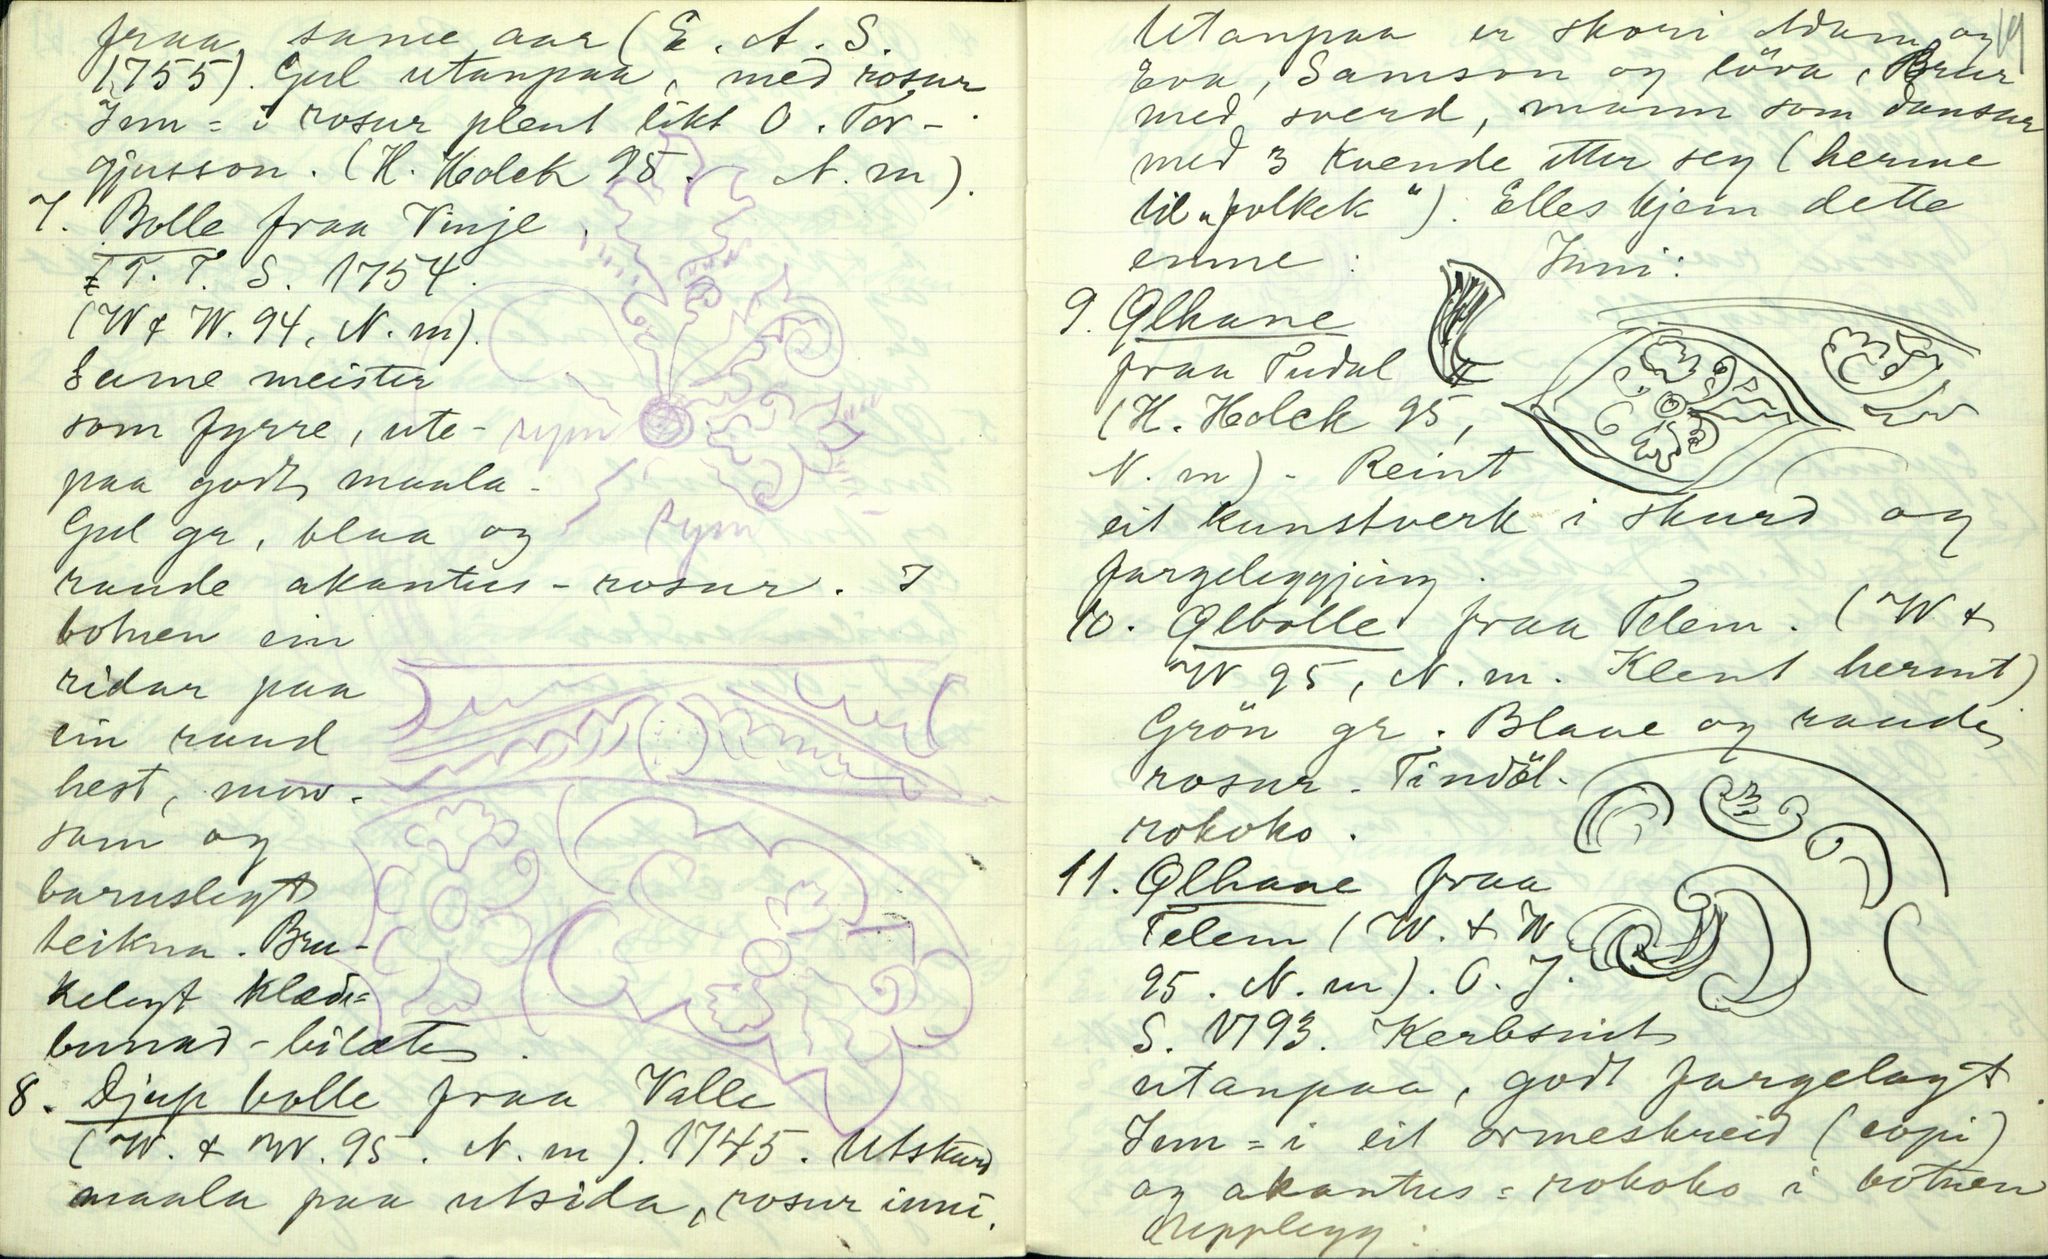 fraa same aar (E. A. S.
1755). Gul utanpaa, med rosur
Inn=i rosur plent likt O. Tor-
gjusson. (H. Holck 95. N. m).
7. Bolle fraa Vinje,
T. T. S. 1754.
(W & W. 94, N. m).
Same meister
som fyrre, ute-
paa godt maala.
Gul gr, blaa og
raude akantus-rosur. I
botnen ein
ridar paa
ein raud
hest, mor-
sam og
barnslegt
teikna. Bru-
kelegt klæde=
bunad-bilæte.
rym
rym
8. Djup bolle fraa Valle
(W. & W. 95. N. m). 1745. Utskurd
maala paa utsida, rosur inni.
19
Utanpaa er skori Adam og
Eva, Samson og löva, Brur
med sverd, mann som dansar
med 3 kvende etter seg (herme
til "folkek"). Elles kjem dette
emne: Inni:
9. Ølhane
fraa Tudal
(H. Holck 95,
N. m) - Reint
eit kunstverk i skurd og
fargeleggjing.
10. Ølbolle fraa Telem. (W &
W 95, N. m. Klent hermt)
Grön gr. Blaae og raude
rosur. Tindöl-
rokoko.
11. Ølhane fraa
Telem (W. & W
95. N. m). O. J.
S. 1793. Kerbsnit
utanpaa, godt fargelagt.
Inn=i eit ormeskreid (copi)
og akantus=rokoko i botnen
Upplegg: